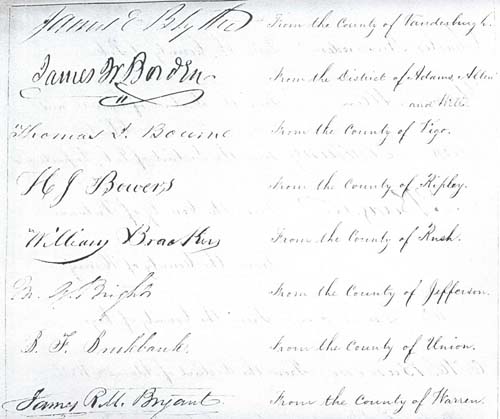 James E Blythe From the County of Vandesburgh.
James W Borden From the District of Adams, Allen
and Wells.
Thomas I. Bourne From the County of Vigo.
H J Bowers From the County of Ripley.
William Bracken From the County of Rush.
M. G. Bright From the County of Jefferson.
B. F. Brookbank. From the County of Union.
James R. M. Bryant From the County of Warren.